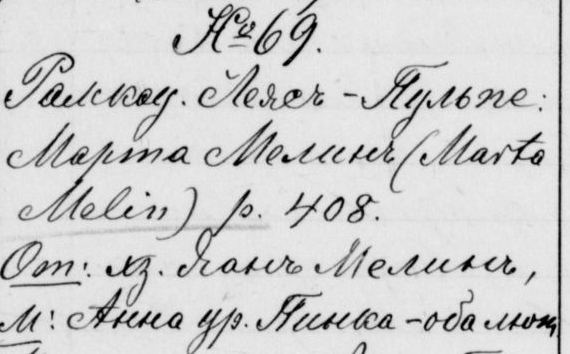 № 69.
Рамкау. Леясъ - Пульпе:
Марта Мелинъ (Marta
Melin) р. 408.
От: хз. Янъ Мелинъ,
М: Анна ур. Пинка - оба лют